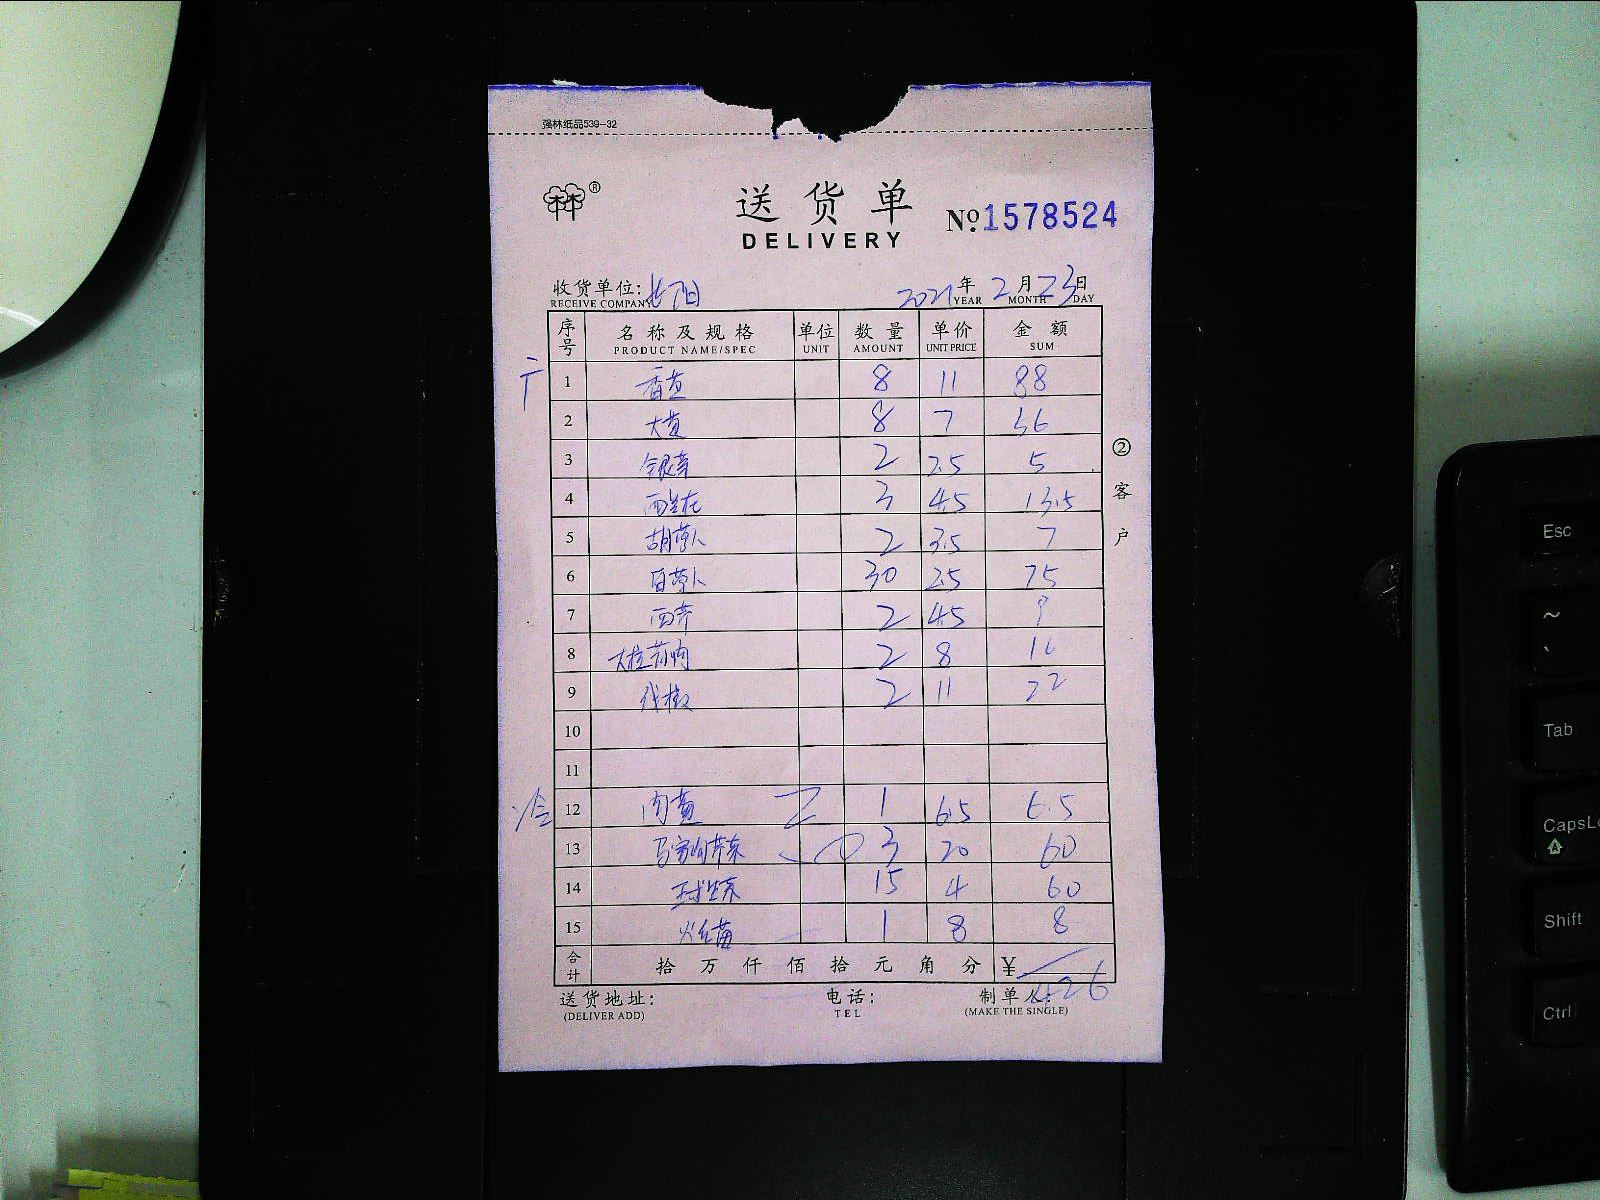 强林纸品539-32
林®
送货单
DELIVERY
№1578524
收货单位: 长阳 2021年2月23日
RECEIVE COMPANY YEAR MONTH DAY
序号 名称及规格 单位 数量 单价 金额
PRODUCT NAME/SPEC UNIT AMOUNT UNIT PRICE SUM
1 香芝 8 11 88
2 大黄 8 7 56
3 银芽 2 2.5 5
4 西兰花 3 4.5 13.5
5 胡萝卜 2 3.5 7
6 白萝卜 30 2.5 75
7 西芹 2 4.5 9
8 2 8 16
9 线椒 2 11 22
10
11
冷 12 1 6.5 6.5
13 3 20 60
14 球生菜 15 4 60
15 1 8 8
合计 拾万仟佰拾元角分 ¥ 426
送货地址: 电话: 制单人:
(DELIVER ADD) TEL (MAKE THE SINGLE)
②客户
Esc
~
Tab
CapsLo
Shift
Ctrl